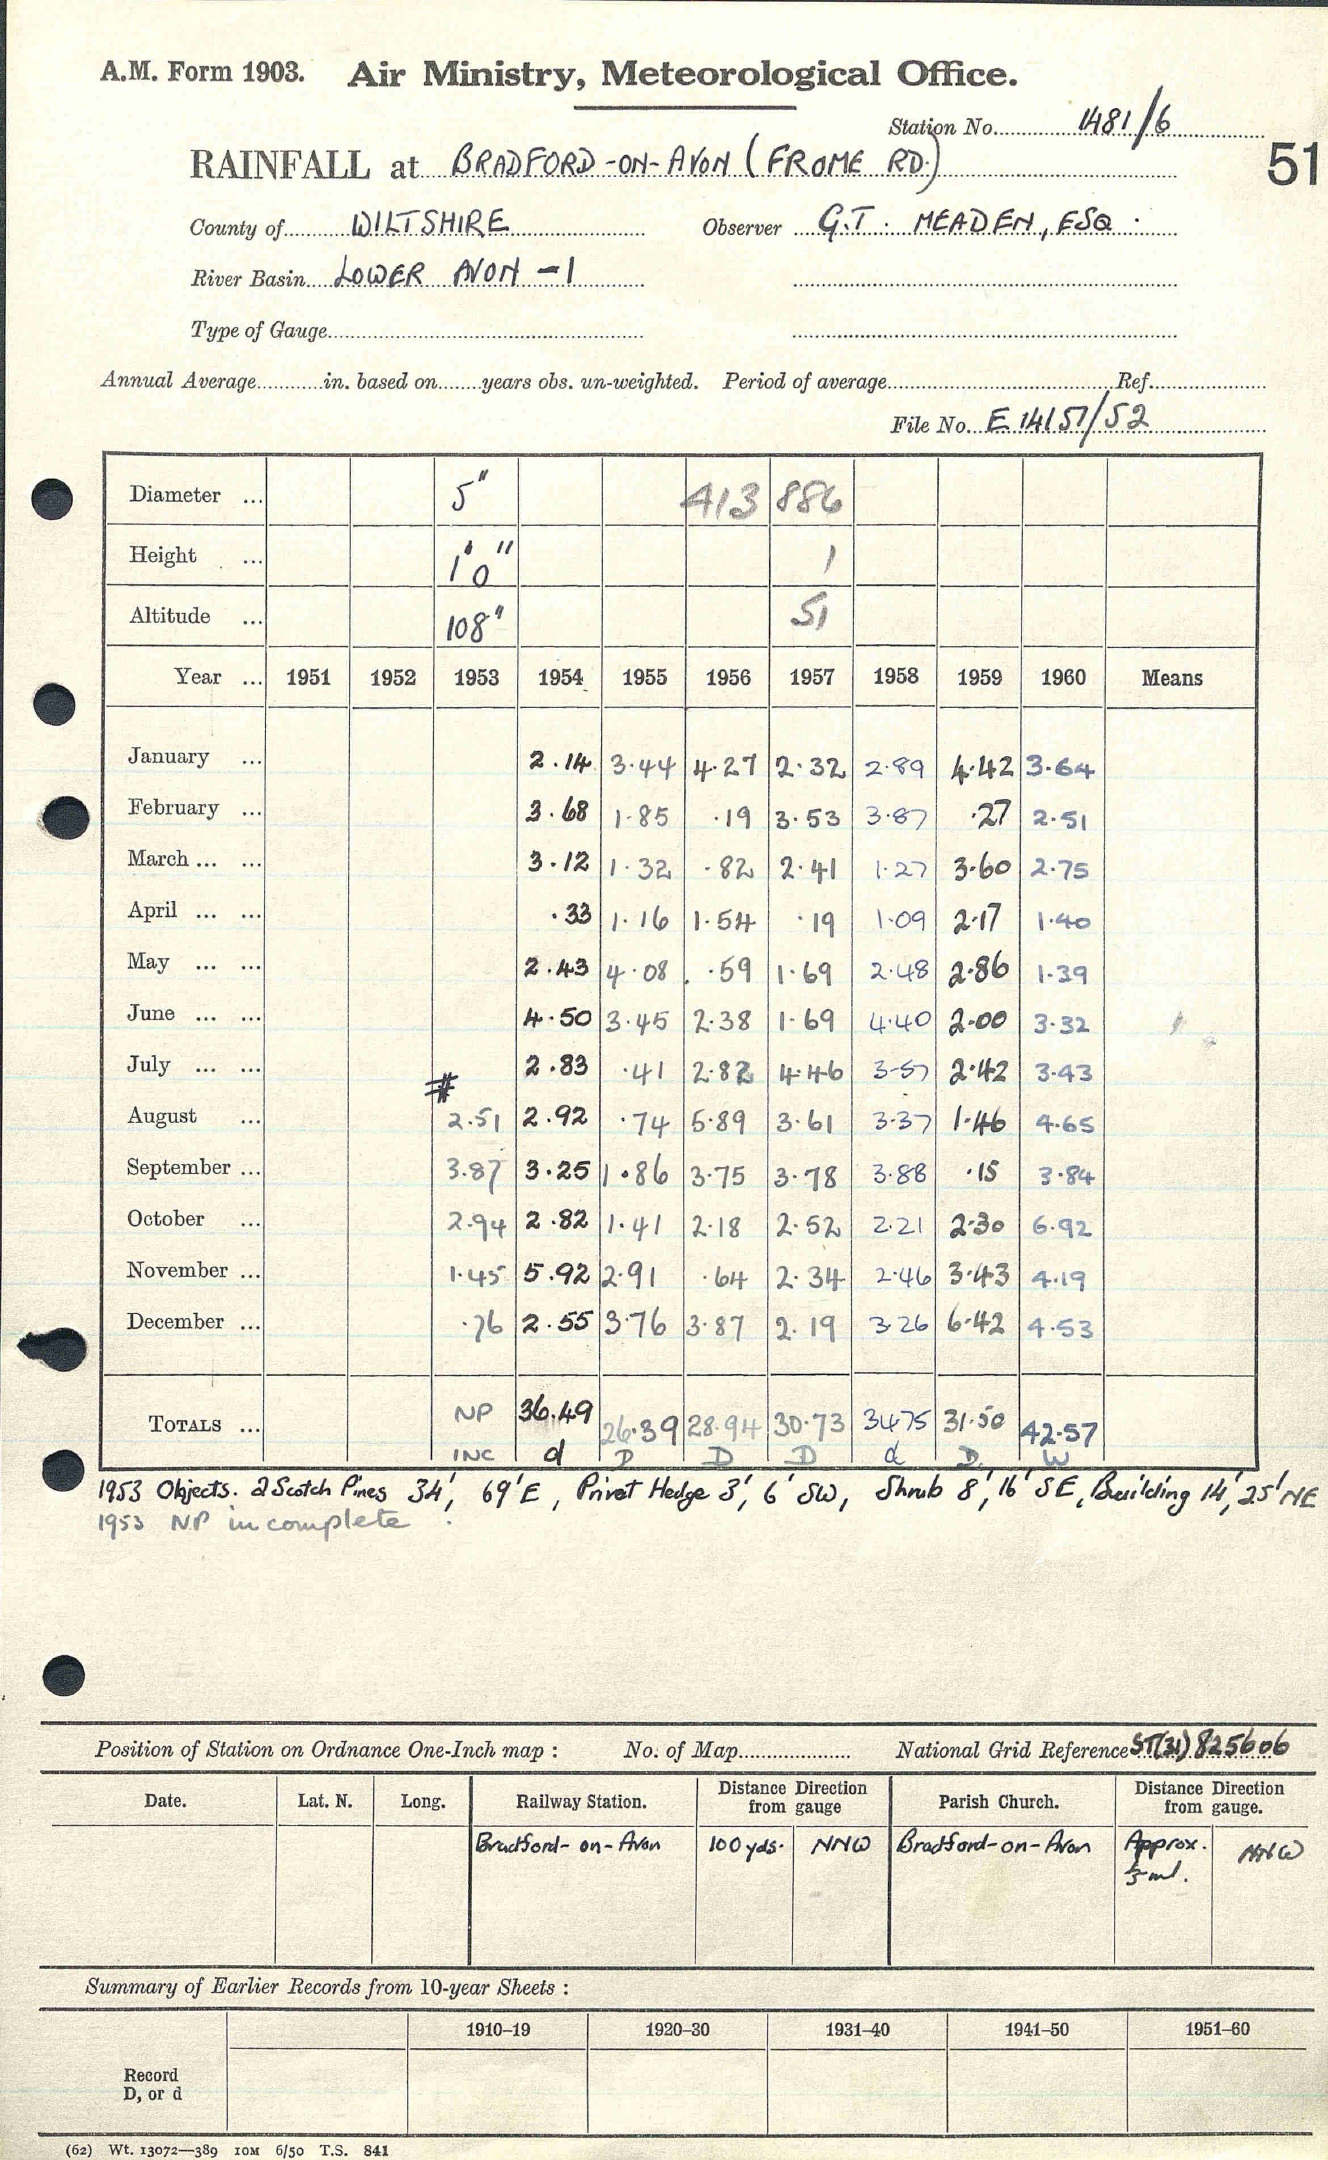 A.M. Form 1903. Air Ministry, Meteorological Office.
Station No. 1481/6
RAINFALL at BRADFORD-ON-AVON (FROME RD.)
51
County of WILTSHIRE Observer G.T. MEADEN, ESQ.
River Basin LOWER AVON -1
Type of Gauge
Annual Average in. based on years obs. un-weighted. Period of average Ref.
File No. E 14151/52
Diameter ... 5" 413 886
Height ... 1' 0" 1
Altitude ... 108" 51
Year ... 1951 1952 1953 1954 1955 1956 1957 1958 1959 1960 Means
January ... 2.14 3.44 4.27 2.32 2.89 4.42 3.64
February ... 3.68 1.85 .19 3.53 3.87 .27 2.51
March ... ... 3.12 1.32 .82 2.41 1.27 3.60 2.75
April ... ... .33 1.16 1.54 .19 1.09 2.17 1.40
May ... ... 2.43 4.08 .59 1.69 2.48 2.86 1.39
June ... ... 4.50 3.45 2.38 1.69 4.40 2.00 3.32
July ... ... # 2.83 .41 2.82 4.46 3.57 2.42 3.43
August ... 2.51 2.92 .74 5.89 3.61 3.37 1.46 4.65
September ... 3.87 3.25 1.86 3.75 3.78 3.88 .15 3.84
October ... 2.94 2.82 1.41 2.18 2.52 2.21 2.30 6.92
November ... 1.45 5.92 2.91 .64 2.34 2.46 3.43 4.19
December ... .76 2.55 3.76 3.87 2.19 3.26 6.42 4.53
TOTALS ... NP 36.49 26.39 28.94 30.73 34.75 31.50 42.57
INC d D D D d D W
1953 Objects. 2 Scotch Pines 34', 69' E, Privet Hedge 3', 6' SW, Shrub 8', 16' SE, Building 14', 25' NE
1953 NP incomplete.
Position of Station on Ordnance One-Inch map : No. of Map National Grid Reference ST(31) 825606
Date. Lat. N. Long. Railway Station. Distance Direction from gauge Parish Church. Distance Direction from gauge.
Bradford-on-Avon 100 yds. NNW Bradford-on-Avon Approx. NNW
Summary of Earlier Records from 10-year Sheets :
1910–19 1920–30 1931–40 1941–50 1951–60
Record
D, or d
(62) Wt. 13072—389 10M 6/50 T.S. 841